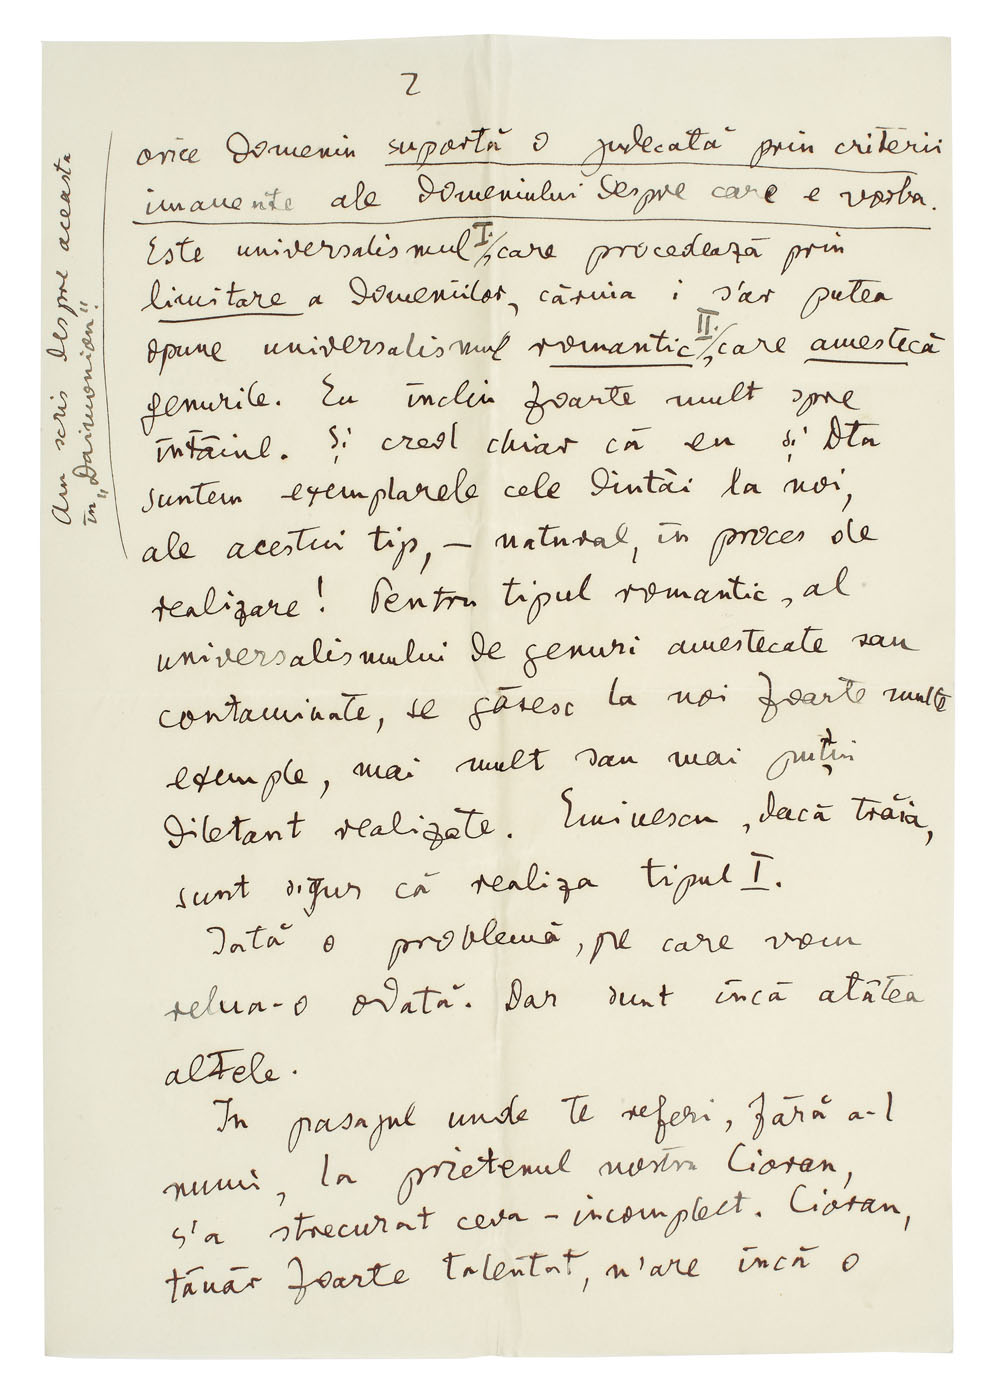 2
orice domeniu suportă o judecată prin criterii
imanente ale domeniului despre care e vorba.
Este universalismul I./, care procedează prin
limitare a domeniilor, căruia i s'ar putea
opune universalismul romantic II./, care amestecă
genurile. Eu înclin foarte mult spre
întâiul. Și cred chiar că eu și Dta
suntem exemplarele cele dintâi la noi,
ale acestui tip, – natural, în proces de
realizare! Pentru tipul romantic, al
universalismului de genuri amestecate sau
contaminate, se găsesc la noi foarte multe
exemple, mai mult sau mai puțin
diletant realizate. Eminescu, dacă trăia,
sunt sigur că realiza tipul I.
Iată o problemă, pe care vom
relua-o odată. Dar sunt încă atâtea
altele.
In pasajul unde te referi, fără a-l
numi, la prietenul nostru Cioran,
s'a strecurat ceva – incomplect. Cioran,
tânăr foarte talentat, n'are încă o
Am scris despre aceasta
în „Daimonion".